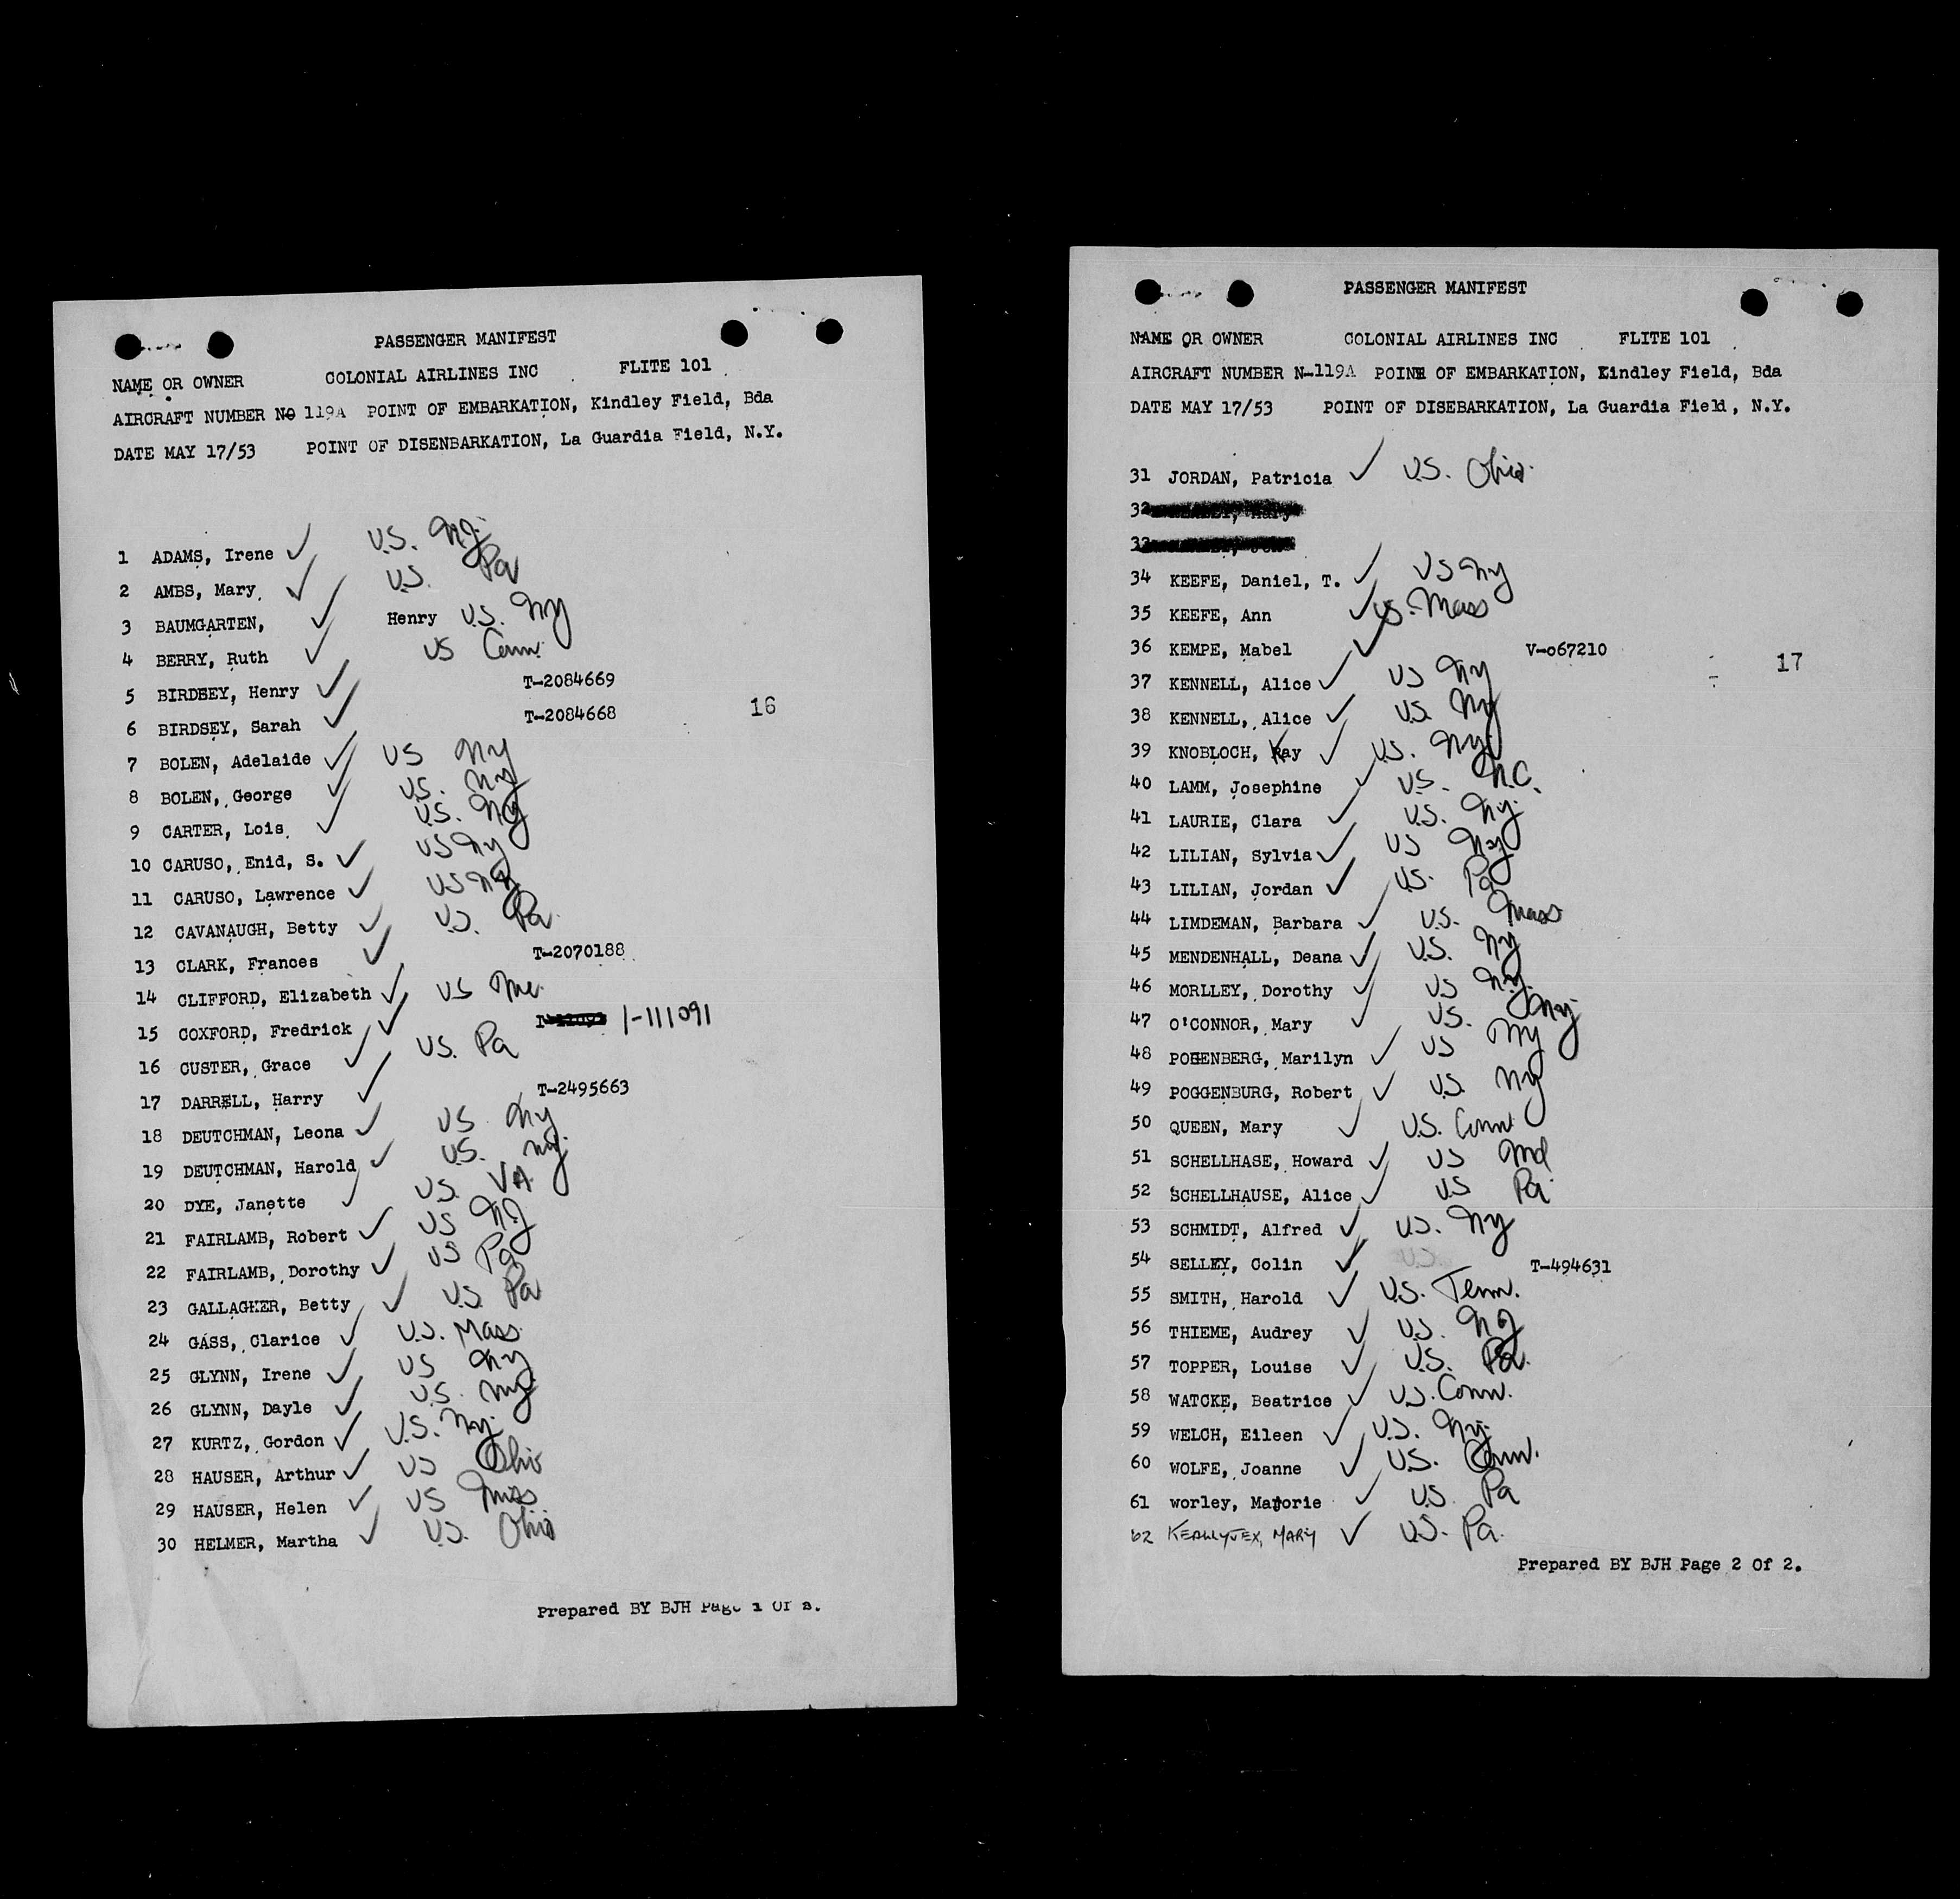 PASSENGER MANIFEST
NAME OR OWNER COLONIAL AIRLINES INC FLITE 101
AIRCRAFT NUMBER NO 119A POINT OF EMBARKATION, Kindley Field, Bda
DATE MAY 17/53 POINT OF DISENBARKATION, La Guardia Field, N.Y.
1 ADAMS, Irene ✓ U.S. N.J.
2 AMBS, Mary ✓ U.S. Pa
3 BAUMGARTEN, ✓ Henry U.S. NY
4 BERRY, Ruth ✓ US Conn.
5 BIRDSEY, Henry ✓ T-2084669
6 BIRDSEY, Sarah ✓ T-2084668
16
7 BOLEN, Adelaide ✓ US NY
8 BOLEN, George ✓ U.S. NY
9 CARTER, Lois ✓ U.S. NY
10 CARUSO, Enid, S. ✓ US NY
11 CARUSO, Lawrence ✓ US
12 CAVANAUGH, Betty ✓ U.S. Pa
13 CLARK, Frances ✓ T-2070188
14 CLIFFORD, Elizabeth ✓ US Me.
15 COXFORD, Fredrick ✓ 1-111091
16 CUSTER, Grace ✓ US. Pa
17 DARRELL, Harry ✓ T-2495663
18 DEUTCHMAN, Leona ✓ US NY
19 DEUTCHMAN, Harold ✓ U.S. NY
20 DYE, Janette ✓ US. VA
21 FAIRLAMB, Robert ✓ US NJ
22 FAIRLAMB, Dorothy ✓ US Pa
23 GALLAGHER, Betty ✓ U.S. Pa
24 GASS, Clarice ✓ U.S. Mass.
25 GLYNN, Irene ✓ US NY
26 GLYNN, Dayle ✓ U.S. NY
27 KURTZ, Gordon ✓ U.S. NY.
28 HAUSER, Arthur ✓ US Ohio
29 HAUSER, Helen ✓ US Miss
30 HELMER, Martha ✓ U.S. Ohio
Prepared BY BJH Page 1 Of 2.
PASSENGER MANIFEST
NAME OR OWNER COLONIAL AIRLINES INC FLITE 101
AIRCRAFT NUMBER N-119A POINT OF EMBARKATION, Kindley Field, Bda
DATE MAY 17/53 POINT OF DISEBARKATION, La Guardia Field, N.Y.
31 JORDAN, Patricia ✓ U.S. Ohio.
32
33
34 KEEFE, Daniel, T. ✓ US NY
35 KEEFE, Ann ✓ U.S. Mass
36 KEMPE, Mabel ✓ V-o67210
17
37 KENNELL, Alice ✓ US NY
38 KENNELL, Alice ✓ U.S. NY
39 KNOBLOCH, Kay ✓ U.S. NY
40 LAMM, Josephine ✓ U.S. N.C.
41 LAURIE, Clara ✓ U.S. N.J.
42 LILIAN, Sylvia ✓ US NY
43 LILIAN, Jordan ✓ US. Pa
44 LIMDEMAN, Barbara ✓ U.S. Mass
45 MENDENHALL, Deana ✓ U.S. NY
46 MORLLEY, Dorothy ✓ US N.Y.
47 O'CONNOR, Mary ✓ U.S. NY
48 POGENBERG, Marilyn ✓ US NY
49 POGGENBURG, Robert ✓ U.S. NY
50 QUEEN, Mary ✓ U.S. Conn
51 SCHELLHASE, Howard ✓ US Md
52 SCHELLHAUSE, Alice ✓ US Pa.
53 SCHMIDT, Alfred ✓ U.S. NY
54 SELLEY, Colin ✓ T-494631
55 SMITH, Harold ✓ U.S. Tenn.
56 THIEME, Audrey ✓ U.S. NJ
57 TOPPER, Louise ✓ U.S. Pa.
58 WATCKE, Beatrice ✓ U.S. Conn.
59 WELCH, Eileen ✓ U.S. N.J.
60 WOLFE, Joanne ✓ U.S. Conn.
61 worley, Marjorie ✓ U.S. Pa
62 MARY ✓ U.S. Pa.
Prepared BY BJH Page 2 Of 2.